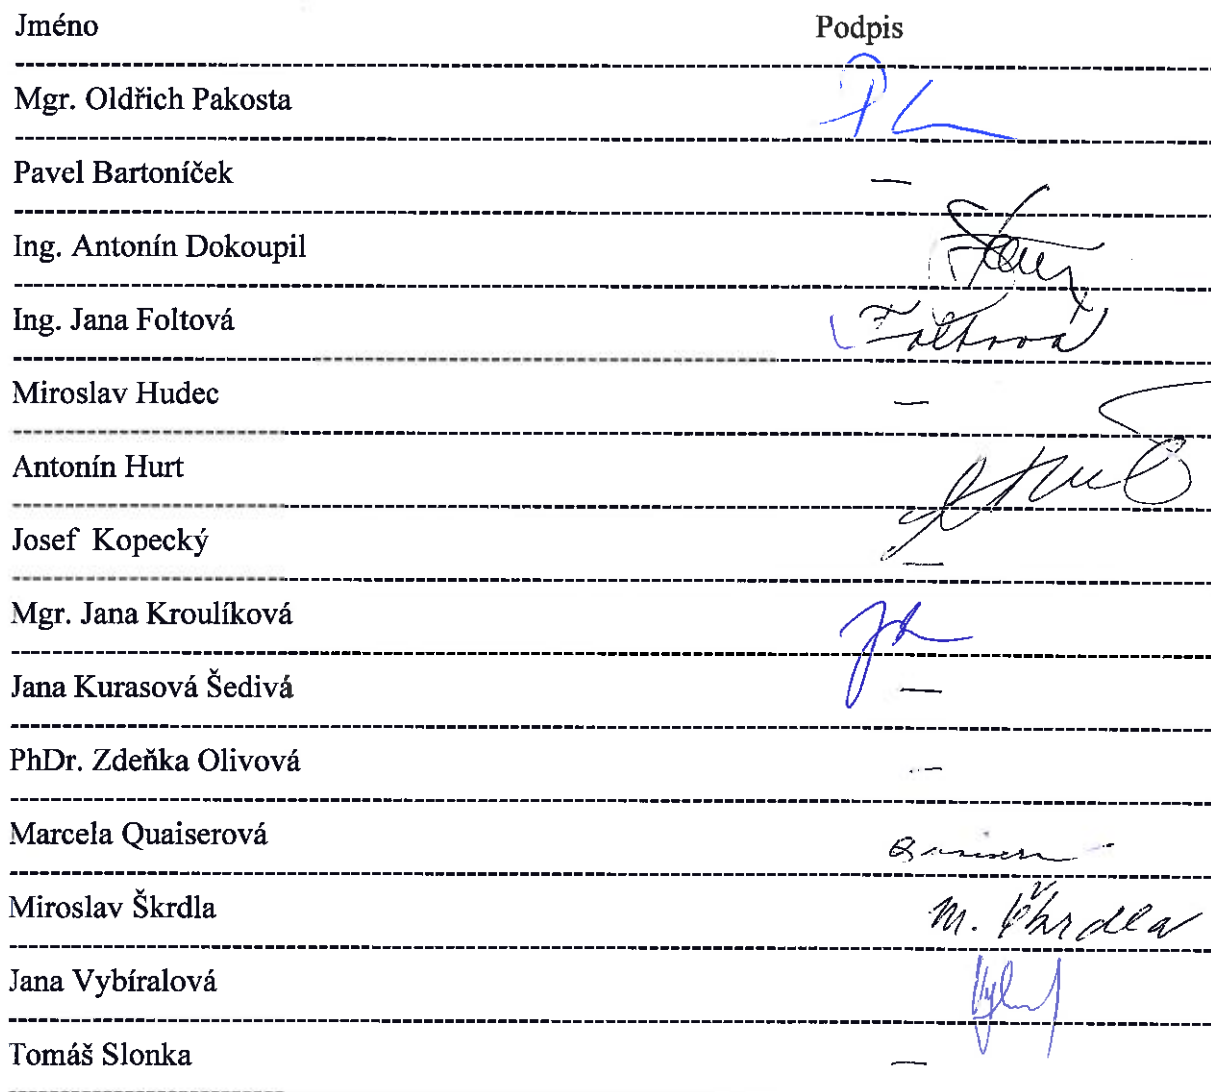 Jméno Podpis
Mgr. Oldřich Pakosta
Pavel Bartoníček —
Ing. Antonín Dokoupil
Ing. Jana Foltová Foltová
Miroslav Hudec —
Antonín Hurt
Josef Kopecký —
Mgr. Jana Kroulíková
Jana Kurasová Šedivá —
PhDr. Zdeňka Olivová —
Marcela Quaiserová
Miroslav Škrdla M. Škrdla
Jana Vybíralová
Tomáš Slonka —